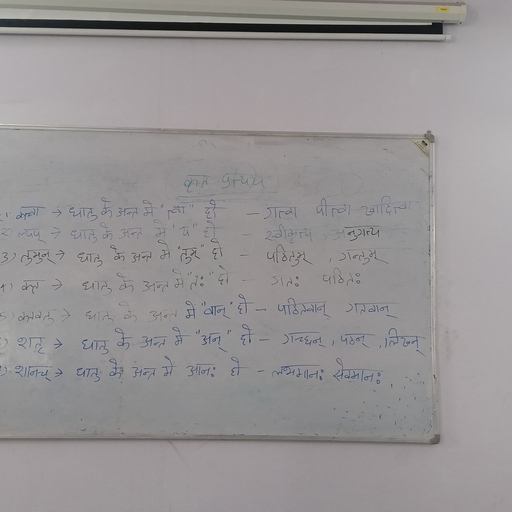 कृत प्रत्यय
क्त्वा → धातु के अन्त में "त्वा" हो - गत्वा पीत्वा खादित्वा
२) ल्यप् → धातु के अन्त में "य" हो - स्वीकृत्य, अनुगत्य
3) तुमुन् → धातु के अन्त में "तुम्" हो - पठितुम्, गन्तुम्
क्त → धातु के अन्त में "तः" हो - गतः पठितः
क्तवतु → धातु के अन्त में "वान्" हो - पठितवान् गतवान्
) शतृ → धातु के अन्त में "अन्" हो - गच्छन्, पठन्, लिखन्
) शानच् → धातु के अन्त में आनः हो - लभमानः सेवमानः